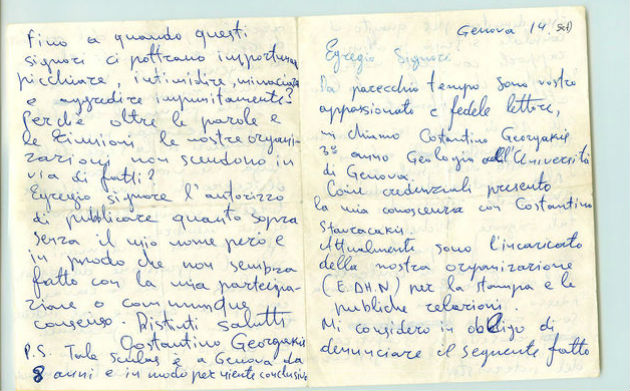 Fino a quando questi
signori ci pottrano importuna
picchiare, intimidire, minaciare
e aggredire impunitamente?
Perchè oltre le parole e
le riunioni, le nostre organi-
zzazioni non scendono in
via di fatti?
Egregio signore l'autorizzo
di pubblicare quanto sopra
senza il mio nome però e
in modo che non sembra
fatto con la mia partecipa-
zione o comunque
consenso. Distinti saluti
Costantino Georgakis
P.S. Tale Sculas è a Genova da
8 anni e in modo per niente conclusivo
Genova 14
Egregio Signori
Da parecchio tempo sono vostro
appassionato e fedele lettore,
mi chiamo Costantino Georgakis
3º anno Geologia all'Università
di Genova.
Come credenziali presento
la mia conoscenza con Costantino
Stavracakis
Attualmente sono l'incaricato
della nostra organizazione
(E.DH.N) per la stampa e le
pubbliche relazioni.
Mi considero in obbligo di
denunciare il seguente fatto